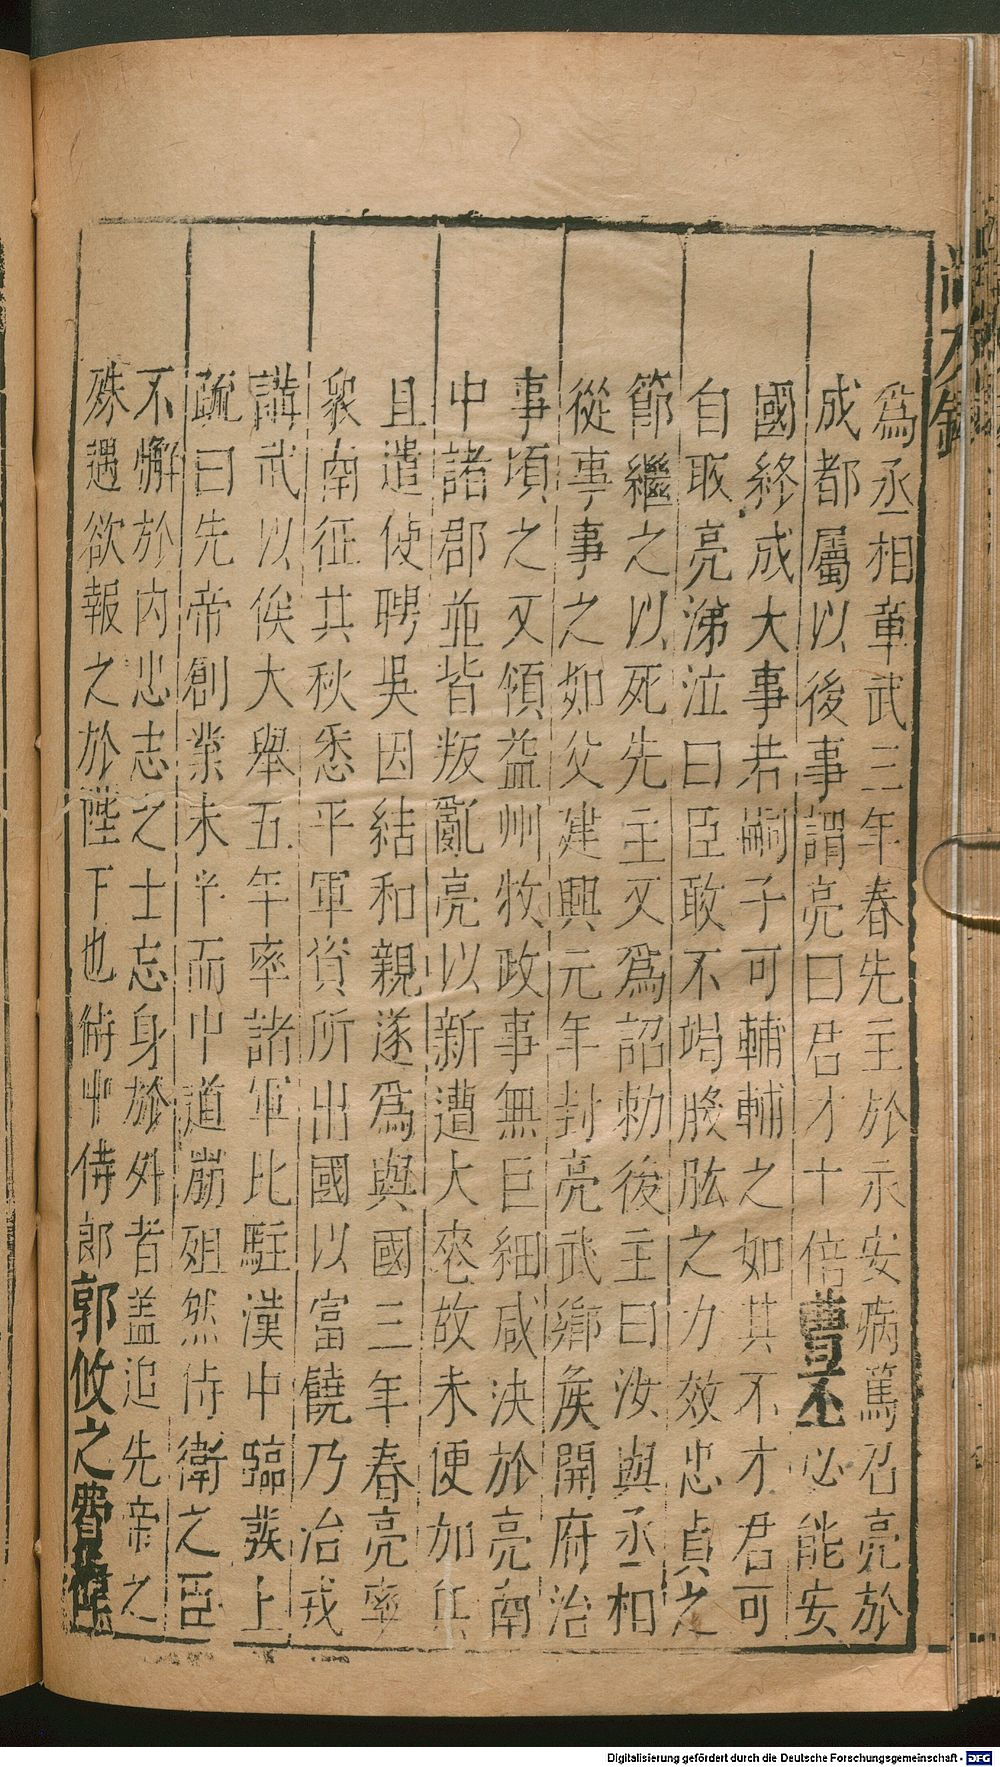 為丞相章武三年春先主於永安病篤召亮於
成都屬以後事謂亮曰君才十倍曹丕必能安
國終成大事若嗣子可輔輔之如其不才君可
自取亮涕泣曰臣敢不竭股肱之力效忠貞之
節繼之以死先主又為詔勑後主曰汝與丞相
從事事之如父建興元年封亮武鄉矦開府治
事頃之又領益州牧政事無巨細咸決於亮南
中諸郡並皆叛亂亮以新遭大喪故未便加兵
且遣使聘吳因結和親遂為與國三年春亮率
衆南征其秋悉平軍資所出國以富饒乃治戎
講武以俟大舉五年率諸軍比駐漢中臨發上
疏曰先帝創業未半而中道崩殂然侍衛之臣
不懈於內忠志之士忘身於外者盖追先帝之
殊遇欲報之於陛下也侍中侍郎郭攸之費禕
Digitalisierung gefördert durch die Deutsche Forschungsgemeinschaft - DFG